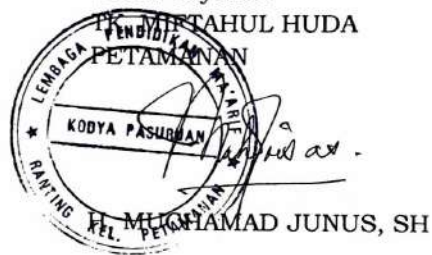 TK. MIFTAHUL HUDA
PETAMANAN
LEMBAGA PENDIDIKAN MA'ARIF
KODYA PASURUAN
RANTING KEL. PETAMANAN
H. MUCHAMAD JUNUS, SH